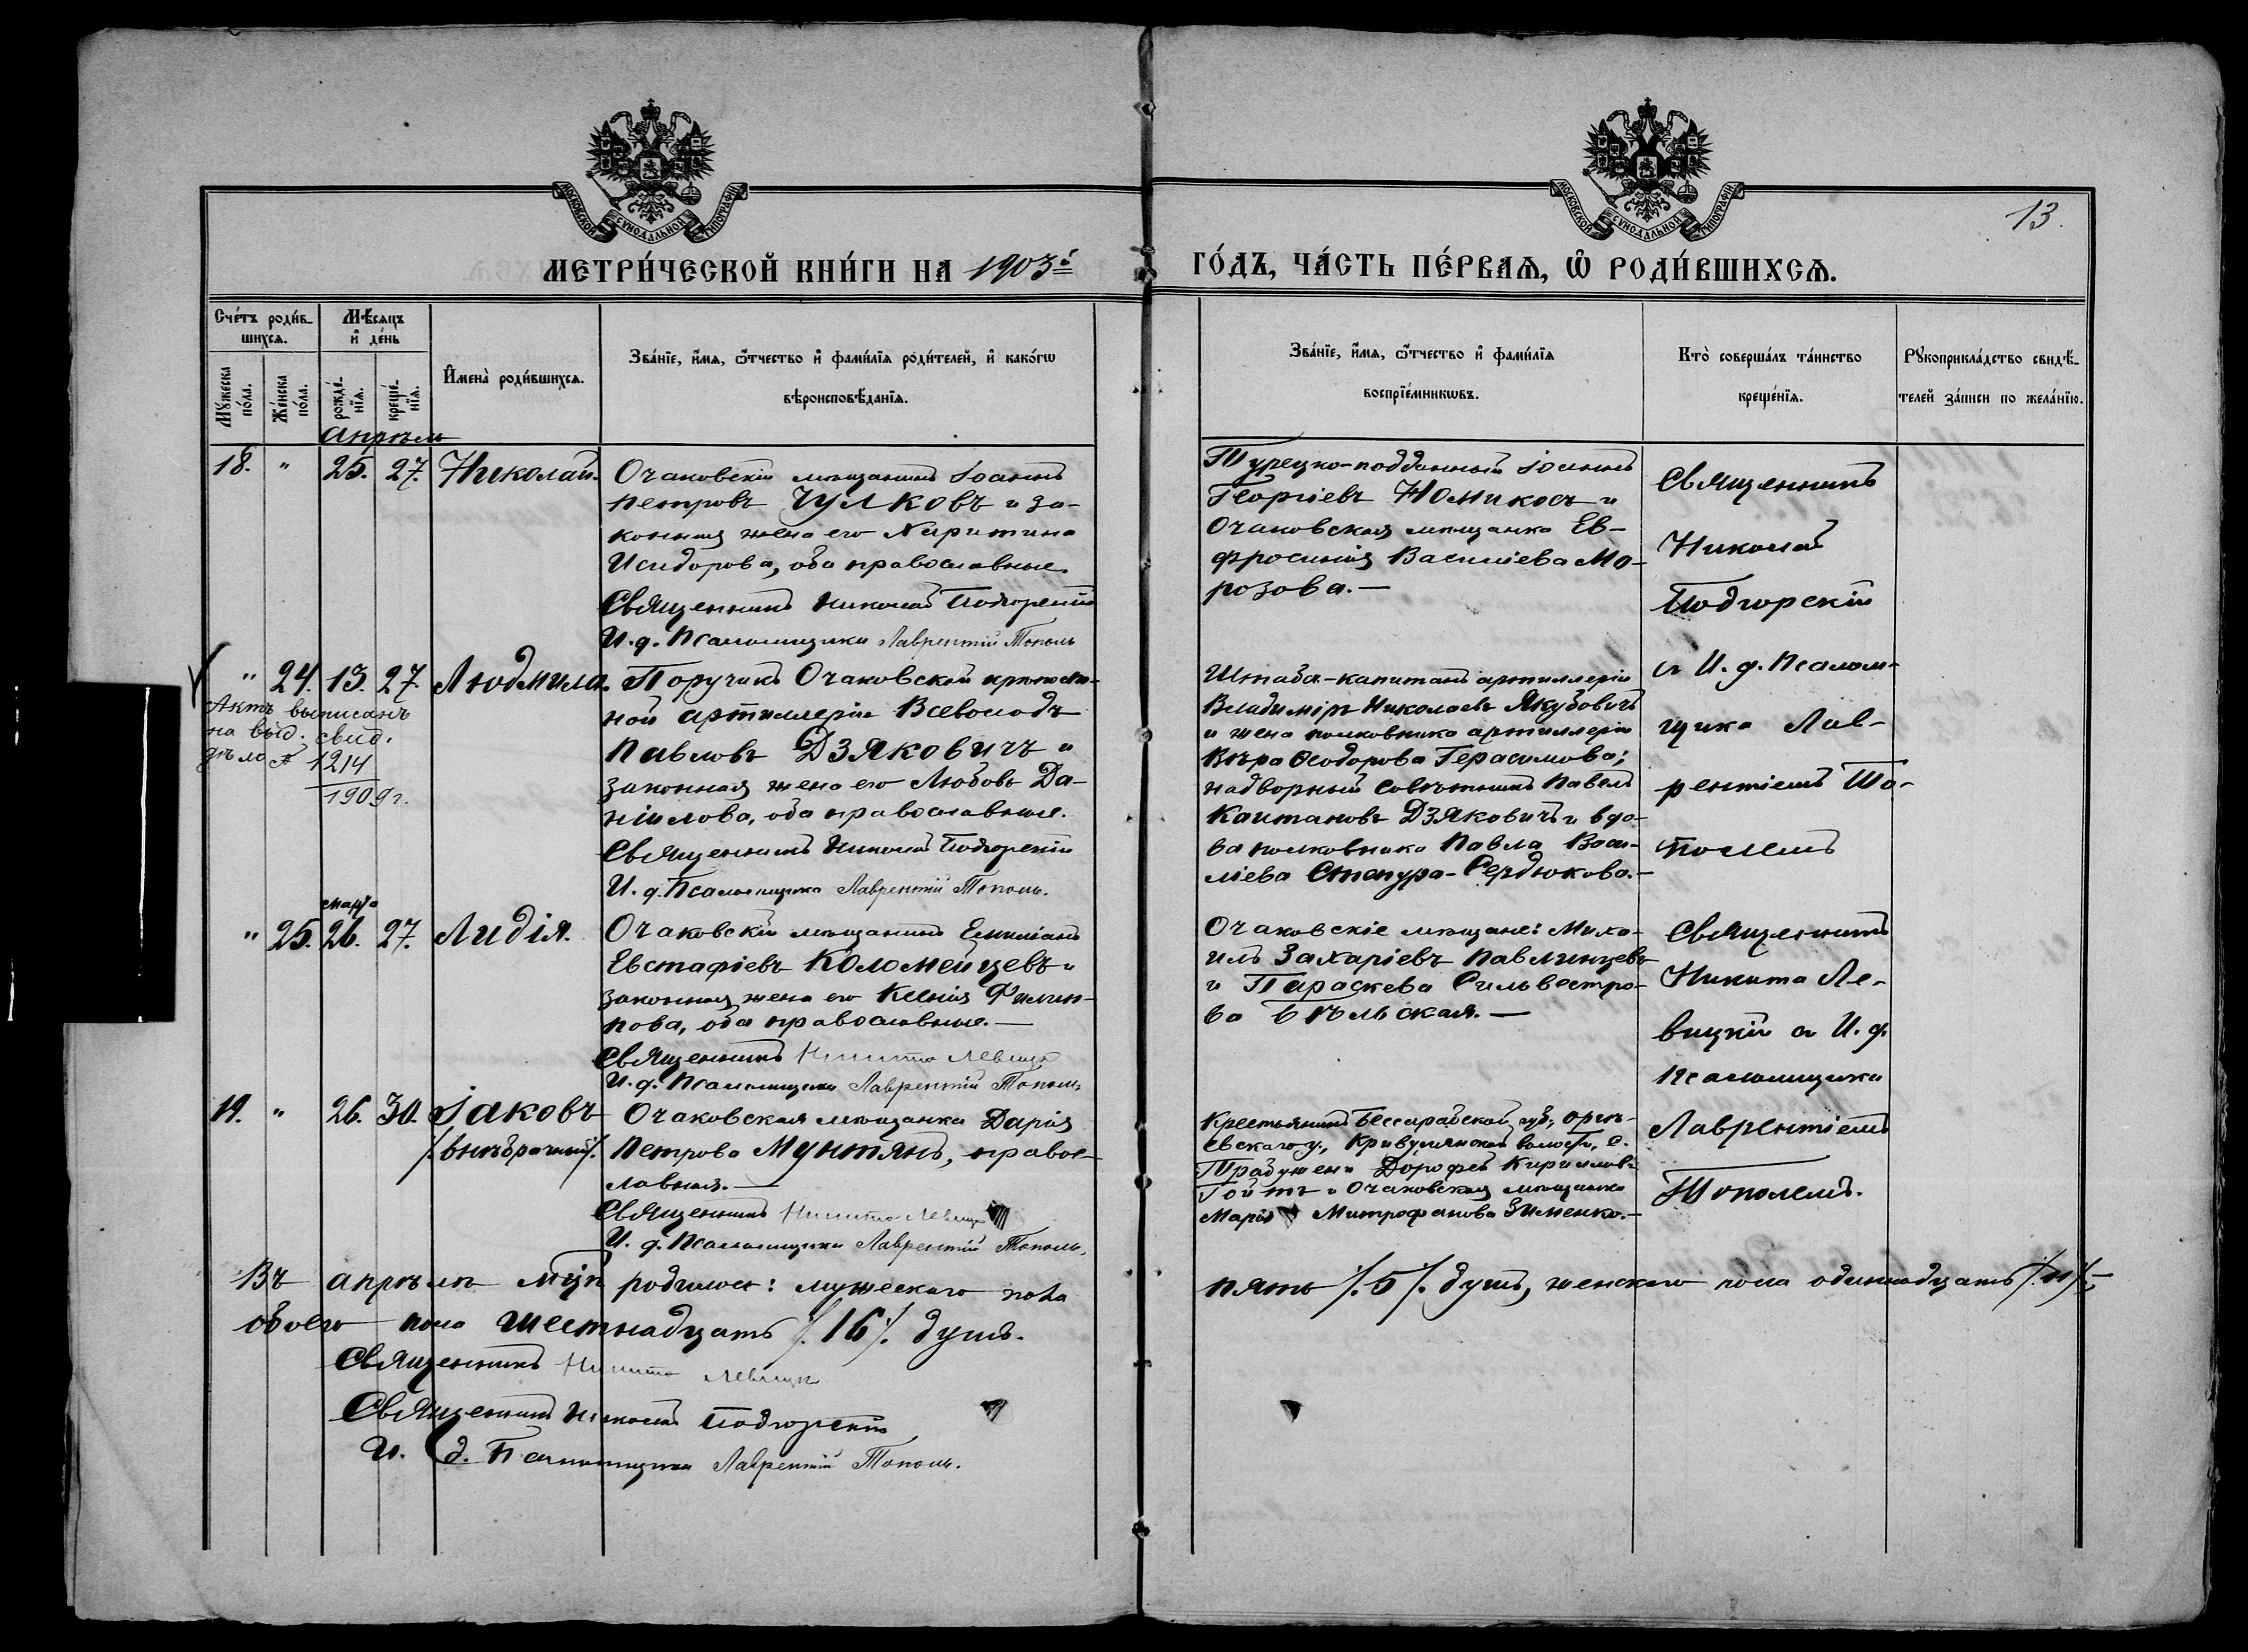 МОСКОВСКОЙ СУНОДАЛЬНОЙ ТИПОГРАФІИ
МОСКОВСКОЙ СУНОДАЛЬНОЙ ТИПОГРАФІИ
13.
МЕТРИ́ЧЕСКОЙ КНИ́ГИ НА 1903й
ГО́ДЪ, ЧА́СТЬ ПЕ́РВАѦ, Ѽ РОДИ́ВШИХСѦ.
Сче́тъ роди́в-
шихсѧ.
Мѣ́сѧцъ
и҆ де́нь
Мꙋжеска по́ла.
Же́нска по́ла.
рожде́-
нїѧ.
креще́-
нїѧ.
И҆мена̀ роди́вшихсѧ.
Зва́нїе, и҆́мѧ, ѻ҆́тчество и҆ фами́лїѧ роди́телей, и҆ како́гѡ
вѣроисповѣ́данїѧ.
Зва́нїе, и҆́мѧ, ѻ҆́тчество и҆ фами́лїѧ
воспрїе́мникѡвъ.
Кто̀ соверша́лъ та́инство
креще́нїѧ.
Рꙋкоприкла́дство свидѣ́-
телей за́писи по жела́нїю.
апрѣль
18. " 25. 27. Николай.
Очаковскій мѣщанинъ Іоаннъ
Петровъ Чулковъ и за-
конная жена его Харитина
Исидорова, оба православные.
Священникъ Николай Подгорскій
И. д. Псаломщика Лаврентій Тополь
Турецко-подданный Іоаннъ
Георгіевъ Номикосъ и
Очаковская мѣщанка Ев-
фросинія Василіева Мо-
розова. —
Священникъ
Николай
Подгорскій
" 24. 13. 27. Людмила.
Актъ выписанъ
на выд. свид.
дѣло № 1214
1909 г.
Поручикъ Очаковской крѣпост-
ной артиллеріи Всеволодъ
Павловъ Дзяковичъ и
законная жена его Любовь Да-
ніилова, оба православные.
Священникъ Николай Подгорскій
И. д. Псаломщика Лаврентій Тополь.
Штабс-капитанъ артиллеріи
Владиміръ Николаевъ Якубовичъ
и жена полковника артиллеріи
Вѣра Ѳеодорова Герасимова;
надворный совѣтникъ Павелъ
Капитоновъ Дзяковичъ и вдо-
ва полковника Павла Васи-
ліева Степура-Сердюкова. —
съ И. д. Псалом-
щика Лав-
рентіемъ То-
полемъ
марта
" 25. 26. 27. Лидія.
Очаковскій мѣщанинъ Емиліанъ
Евстафіевъ Коломейцевъ и
законная жена его Ксенія Филип-
пова, оба православные. —
Священникъ Никита Левицкій
И. д. Псаломщика Лаврентій Тополь
Очаковскіе мѣщане: Миха-
илъ Захаріевъ Павлинцевъ
и Параскева Сильвестро-
ва Бѣльская. —
Священникъ
Никита Ле-
вицкій съ И. д.
псаломщика
19. " 26. 30. Іаковъ
/.внѣбрачный/.
Очаковская мѣщанка Дарія
Петрова Мунтянъ, правос-
лавная. —
Священникъ Никита Левицкій
И. д. Псаломщика Лаврентій Тополь.
Крестьянинъ Бессарабской губ., Оргѣ-
евскаго у., волости, с.
Дорофей Кирилловъ
и Очаковская мѣщанка
Марія Митрофанова Зименко. —
Лаврентіемъ
Тополемъ.
Въ апрѣлѣ м-цѣ родилось: мужескаго пола
пять /.5/. душъ, женскаго пола одиннадцать /.11/.,
обоего пола шестнадцать /.16/. душъ.
Священникъ Никита Левицкій
Священникъ Николай Подгорскій
И. д. Псаломщика Лаврентій Тополь.